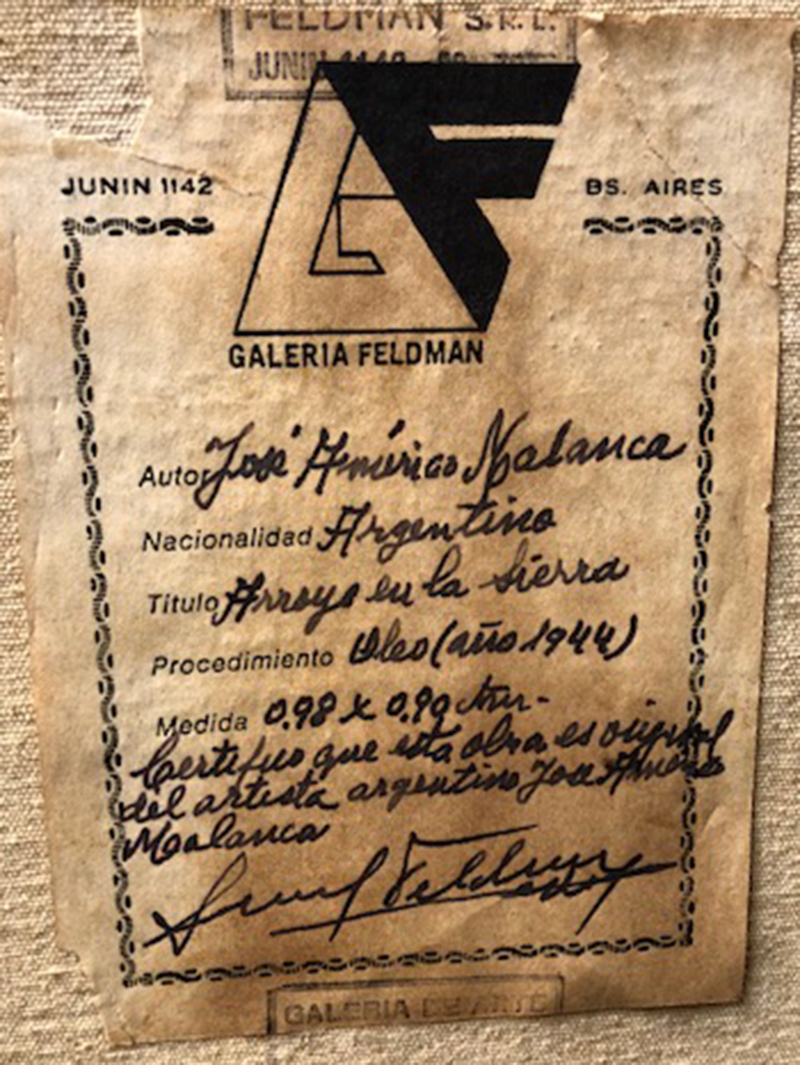 FELDMAN S.R.L.
JUNIN 1142
JUNIN 1142 BS. AIRES
GF
GALERIA FELDMAN
Autor José Américo Malanca
Nacionalidad Argentino
Titulo Arroyo en la Sierra
Procedimiento Oleo (año 1944)
Medida 0.98 x 0.90
Certifico que esta obra es original
del artista argentino José Américo
Malanca
Feldman
GALERIA DE ARTE